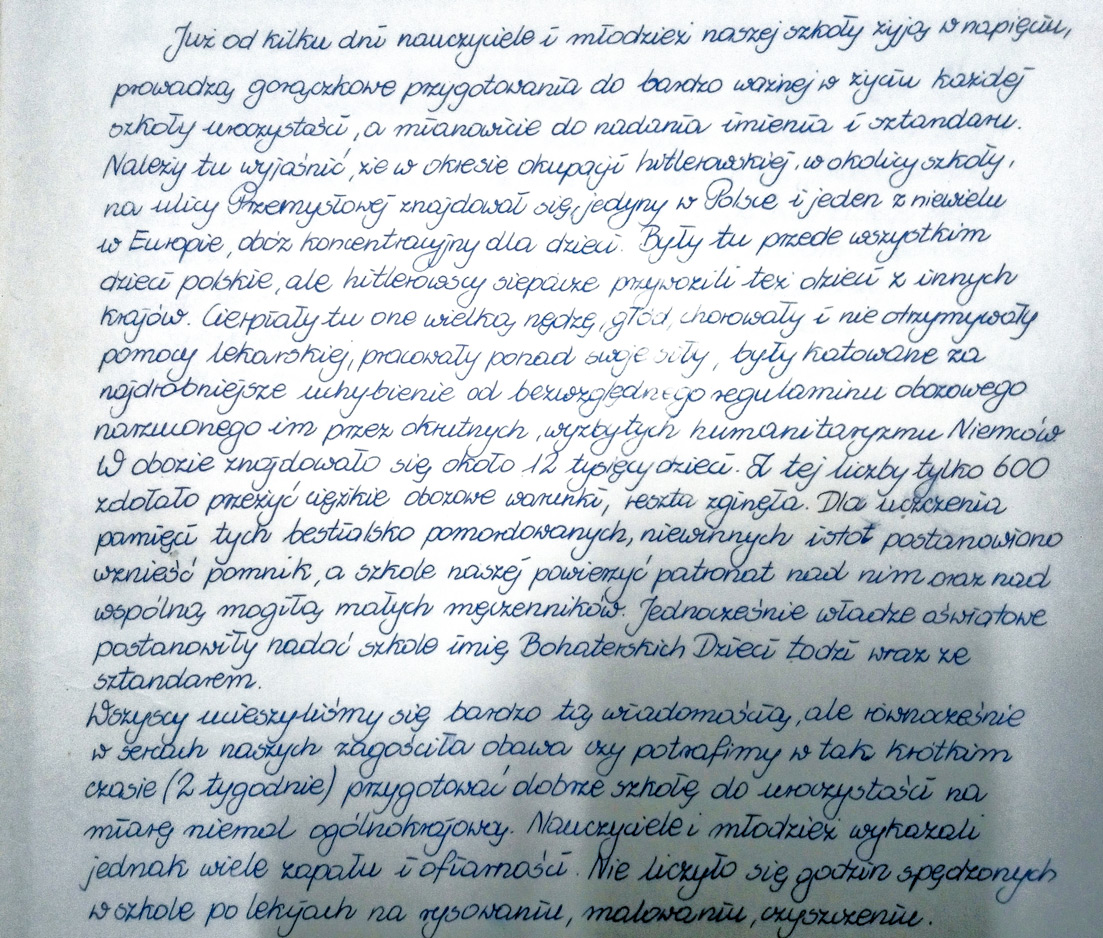 Już od kilku dni nauczyciele i młodzież naszej szkoły żyją w napięciu,
prowadzą gorączkowe przygotowania do bardzo ważnej w życiu każdej
szkoły uroczystości, a mianowicie do nadania imienia i sztandaru.
Należy tu wyjaśnić, że w okresie okupacji hitlerowskiej, w okolicy szkoły,
na ulicy Przemysłowej znajdował się, jedyny w Polsce i jeden z niewielu
w Europie, obóz koncentracyjny dla dzieci. Były tu przede wszystkim
dzieci polskie, ale hitlerowscy siepacze przywozili też dzieci z innych
krajów. Cierpiały tu one wielką nędzę, głód, chorowały i nie otrzymywały
pomocy lekarskiej, pracowały ponad swoje siły, były katowane za
najdrobniejsze uchybienie od bezwzględnego regulaminu obozowego
narzuconego im przez okrutnych, wyzbytych humanitaryzmu Niemców
W obozie znajdowało się około 12 tysięcy dzieci. Z tej liczby tylko 600
zdołało przeżyć ciężkie obozowe warunki, reszta zginęła. Dla uczczenia
pamięci tych bestialsko pomordowanych, niewinnych istot postanowiono
wznieść pomnik, a szkole naszej powierzyć patronat nad nim oraz nad
wspólną mogiłą małych męczenników. Jednocześnie władze oświatowe
postanowiły nadać szkole imię Bohaterskich Dzieci Łodzi wraz ze
sztandarem.
Wszyscy ucieszyliśmy się bardzo tą wiadomością, ale równocześnie
w sercach naszych zagościła obawa czy potrafimy w tak krótkim
czasie (2 tygodnie) przygotować dobrze szkołę do uroczystości na
miarę niemal ogólnokrajową. Nauczyciele i młodzież wykazali
jednak wiele zapału i ofiarności. Nie liczyło się godzin spędzonych
w szkole po lekcjach na rysowaniu, malowaniu, czyszczeniu.